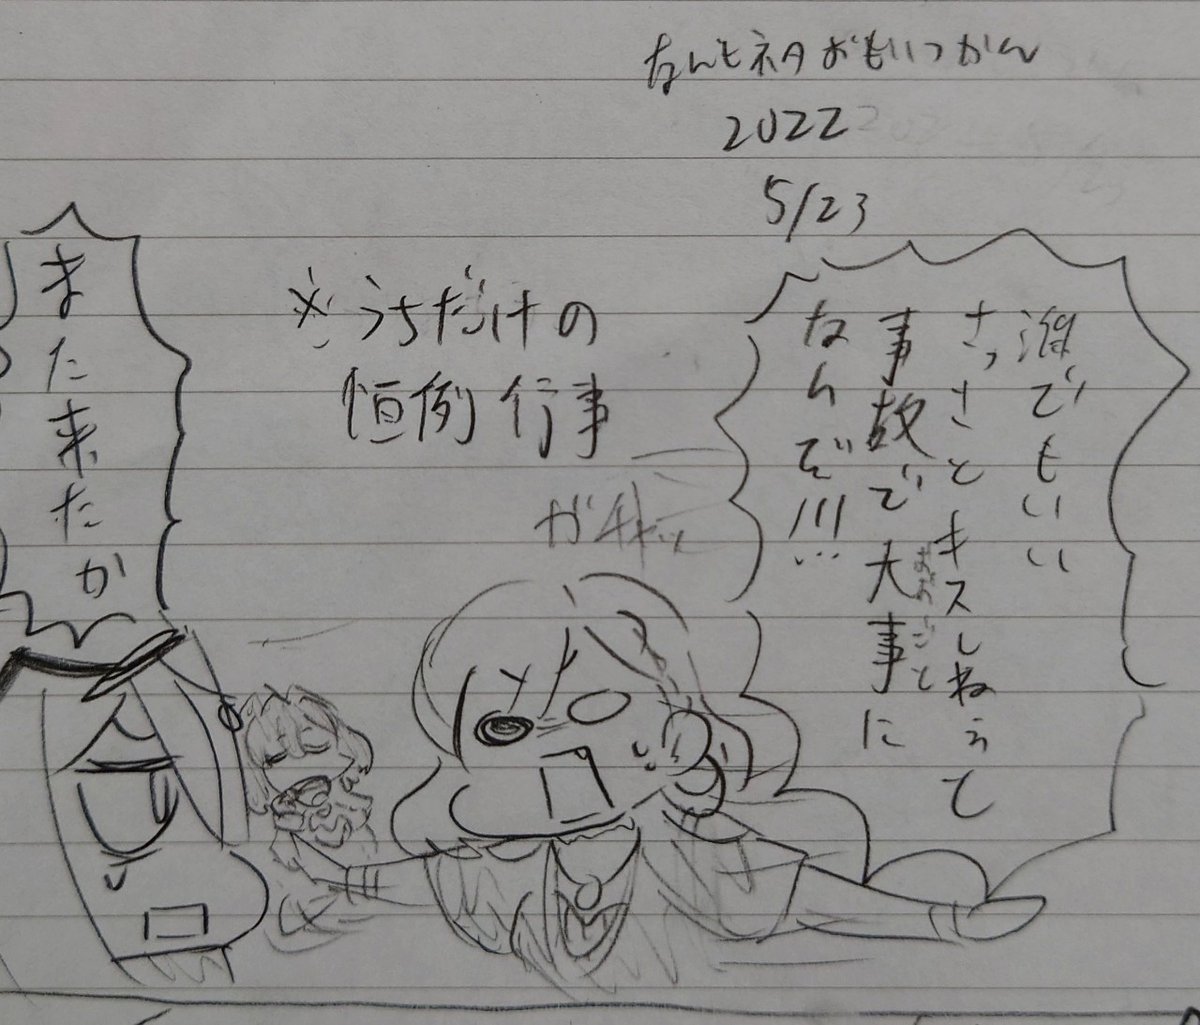 なんもネタおもいつかん
2022
5/23
誰でもいい
さっさとキスしねぇと
事故で大事に
おおごと
なんぞ!!!
※うちだけの
恒例行事
ガチャッ
また来たか